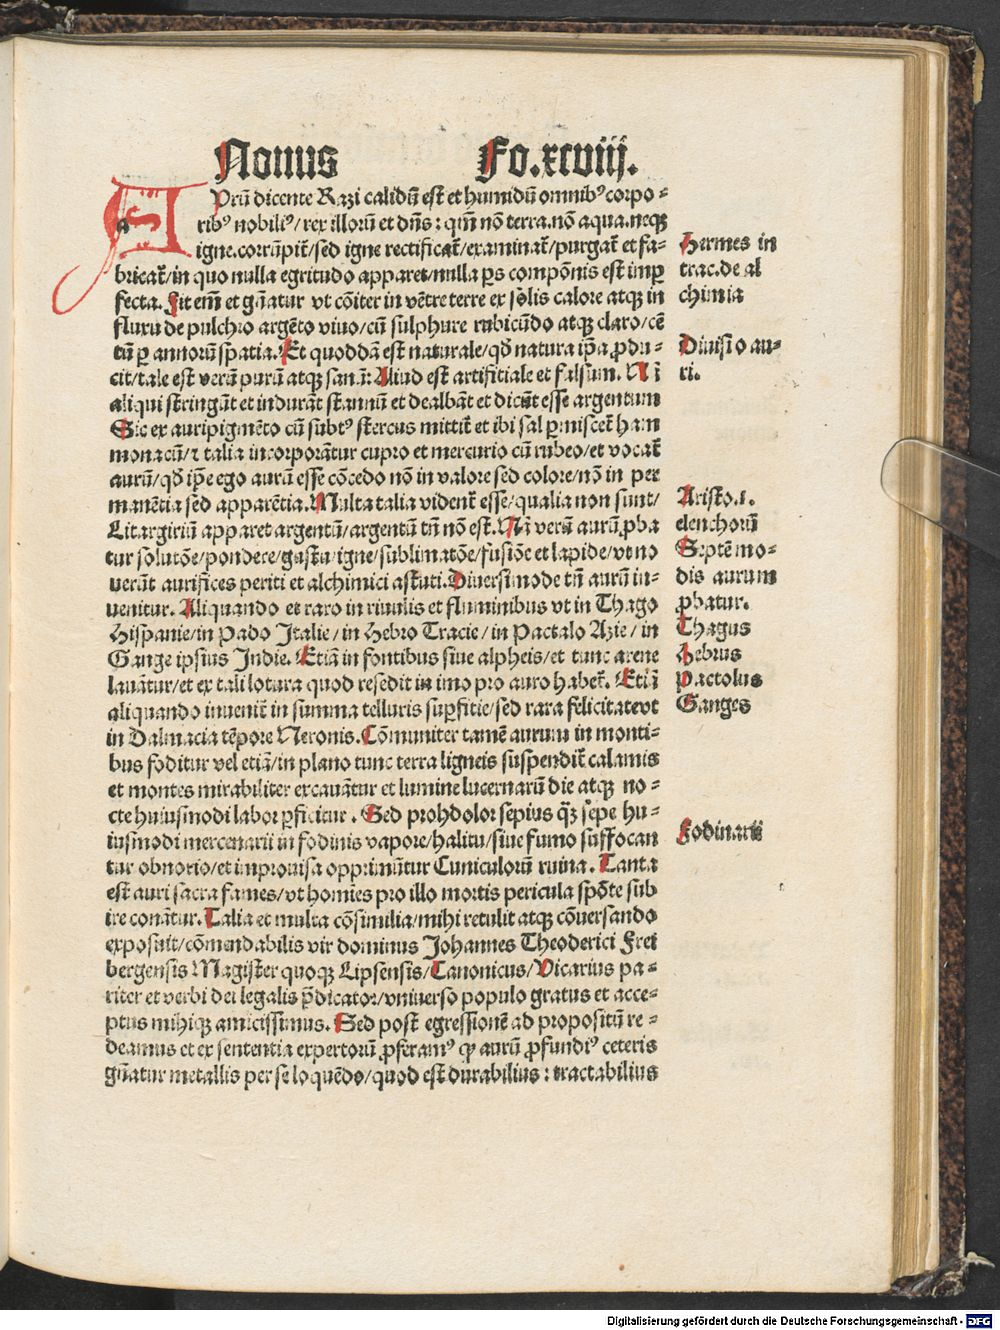 Nonus Fo.xcviij.
APrū dicente Razi calidū est et humidū omnibꝰ corpo⸗
ribꝰ nobiliꝰ/rex illorū et dn̄s: qm̄ nō terra.nō aqua.neqꝫ
igne.corrūpit̄/sed igne rectificat̄/examinat̄/purgat̄ et fa⸗
bricat̄/in quo nulla egritudo apparet/nulla ꝑs compōnis est imꝑ
fecta. Fit em̄ et gn̄atur vt cōiter in vētre terre ex solis calore atqꝫ in
fluxu de pulchro argēto viuo/cū sulphure rubicūdo atqꝫ claro/cē
tū ꝑ annorū spatia. Et quoddā est naturale/qd̄ natura ip̄a ꝓdu⸗
cit/tale est verū purū atqꝫ sanū: Aliud est artifitiale et falsum. Nā
aliqui stringūt et indurāt stannū et dealbāt et dicūt esse argentum
Sic ex auripigmēto cū subtꝰ stercus mittit̄ et ibi sal ꝑmiscet̄ ham
monacū/⁊ talia incorporātur cupro et mercurio cū rubeo/et vocāt
aurū/qd̄ ip̄e ego aurū esse cōcedo nō in valore sed colore/nō in per
manētia sed apparētia. Multa talia vident̄ esse/qualia non sunt/
Litargiriū apparet argentū/argentū tn̄ nō est. Nā verū aurū ꝓba
tur solutōe/pondere/gustu/igne/sublimatōe/fusiōe et lapide/vt no
uerūt aurifices periti et alchimici astuti. Diuersimode tn̄ aurū in⸗
uenitur. Aliquando et raro in riuulis et fluminibus vt in Thago
Hispanie/in Pado Italie/in Hebro Tracie/in Pactalo Azie/in
Gange ipsius Indie. Etiā in fontibus siue alpheis/et tunc arene
lauātur/et ex tali lotura quod resedit in imo pro auro habet̄. Etiā
aliquando inuenit̄ in summa telluris suꝑfitie/sed rara felicitate vt
in Dalmacia tēpore Neronis. Cōmuniter tamē aurum in monti⸗
bus foditur vel etiā/in plano tunc terra ligneis suspendit̄ calamis
et montes mirabiliter excauātur et lumine lucernarū die atqꝫ no⸗
cte huiusmodi labor ꝑficitur. Sed prohdolor sepius qꝫ sepe hu⸗
iusmodi mercenarii in fodinis vapore/halitu/siue fumo suffocan
tur obnoxio/et improuisa opprimūtur Cuniculorū ruina. Tanta
est auri sacra fames/vt homīes pro illo mortis pericula spōte sub
ire conātur. Talia et multa cōsimilia/mihi retulit atqꝫ cōuersando
exposuit/cōmendabilis vir dominus Johannes Theoderici Frei
bergensis Magister quoqꝫ Lipsensis/Canonicus/Vicarius pa⸗
riter et verbi dei legalis p̄dicator/vniuerso populo gratus et acce⸗
ptus mihiqꝫ amicissimus. Sed post egressionē ad propositū re⸗
deamus et ex sententia expertorū ꝓferamꝰ ꝙ aurū ꝓfundiꝰ ceteris
gn̄atur metallis per se loquēdo/quod est durabilius: tractabilius
Hermes in
trac.de al
chimia
Diuisio au⸗
ri.
Aristo.1.
elenchorū
Septē mo⸗
dis aurum
ꝓbatur.
Thagus
Hebrus
Pactolus
Ganges
Fodinarii
Digitalisierung gefördert durch die Deutsche Forschungsgemeinschaft - DFG